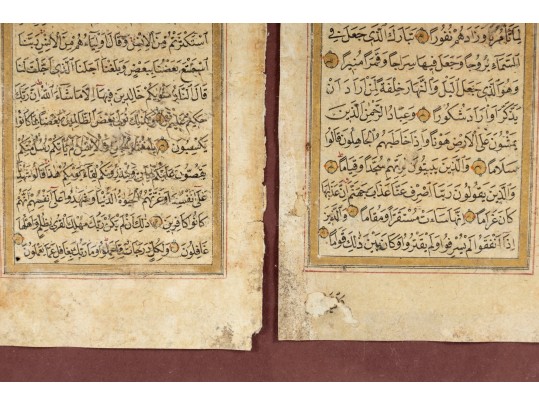 لما تأمرنا وزادهم نفورا تبارك الذي جعل في
السماء بروجا وجعل فيها سراجا وقمرا منيرا
وهو الذي جعل الليل والنهار خلفة لمن اراد ان
يذكر او اراد شكورا وعباد الرحمن الذين
يمشون على الارض هونا واذا خاطبهم الجاهلون قالوا
سلاما والذين يبيتون لربهم سجدا وقياما
والذين يقولون ربنا اصرف عنا عذاب جهنم ان عذابها
كان غراما انها ساءت مستقرا ومقاما والذين
اذا انفقوا لم يسرفوا ولم يقتروا وكان بين ذلك قواما
استكثرتم من الانس وقال اولياؤهم من الانس ربنا
استمتع بعضنا ببعض وبلغنا اجلنا الذي اجلت لنا
قال النار مثويكم خالدين فيها الا ما شاء الله ان ربك
حكيم عليم وكذلك نولي بعض الظالمين بعضا بما كانوا
يكسبون يا معشر الجن والانس الم يأتكم رسل منكم
يقصون عليكم اياتي وينذرونكم لقاء يومكم هذا قالوا شهدنا
على انفسنا وغرتهم الحيوة الدنيا وشهدوا على انفسهم انهم
كانوا كافرين ذلك ان لم يكن ربك مهلك القرى بظلم واهلها
غافلون ولكل درجات مما عملوا وما ربك بغافل عما يعملون